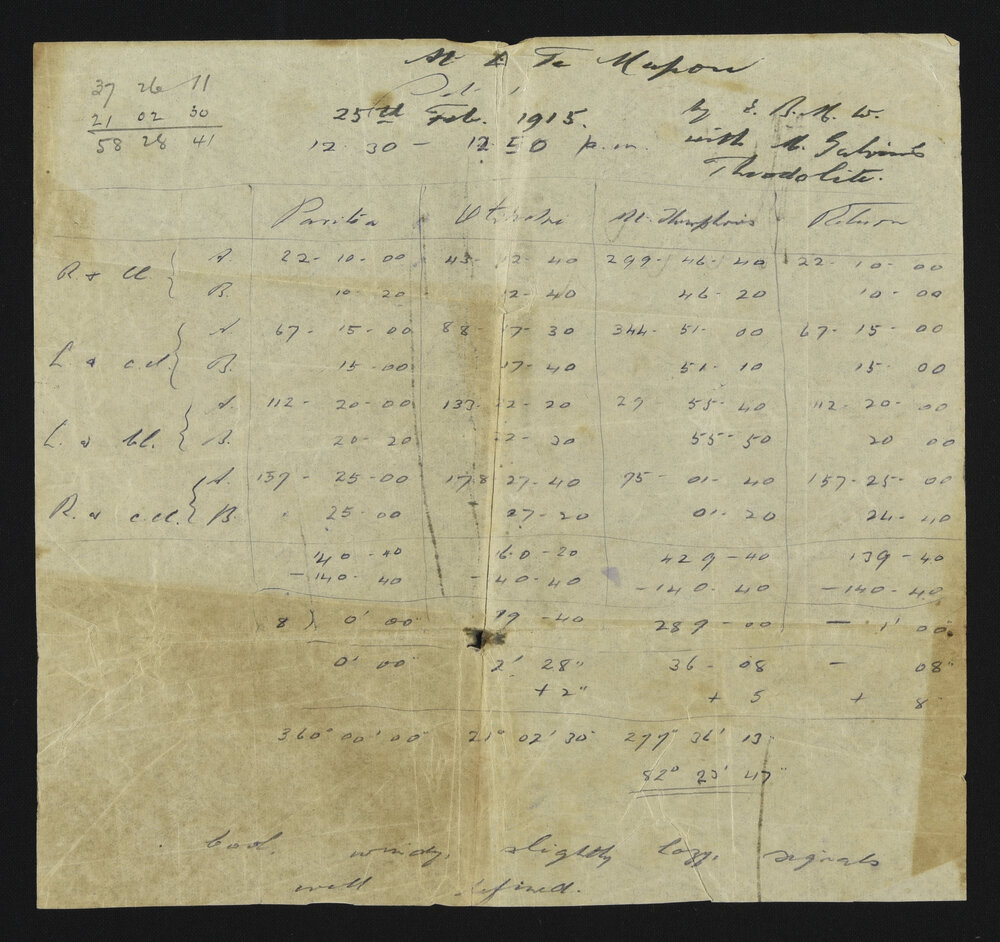 At Te Mapou
37 26 11
21 02 30
58 28 41
25th Feb. 1915.
12.30 - 12.50 p.m.
by E. B. M. W.
with
Theodolite.
Mt. Humphries Return
R & Cl. { A. 22-10-00 43-12-40 299-46-40 22-10-00
B. 10-20 12-40 46-20 10-00
L & c.cl. { A. 67-15-00 88-17-30 344-51-00 67-15-00
B. 15-00 17-40 51-10 15-00
L. & Cl. { A. 112-20-00 133-22-20 29-55-40 112-20-00
B. 20-20 22-30 55-50 20 00
R. & c.cl. { A. 157-25-00 178 27-40 75-01-40 157-25-00
B. 25-00 27-20 01-20 24-40
140-40 160-20 429-40 139-40
-140-40 -140-40 -140-40 -140-40
8) 0' 00 19-40 289-00 - 1' 00
0' 00 2' 28" 36-08 - 08"
+ 2" + 5 + 8
360° 00' 00" 21° 02' 30" 277° 36' 13"
82° 23' 47"
Cool. windy. slightly hazy. signals
well defined.